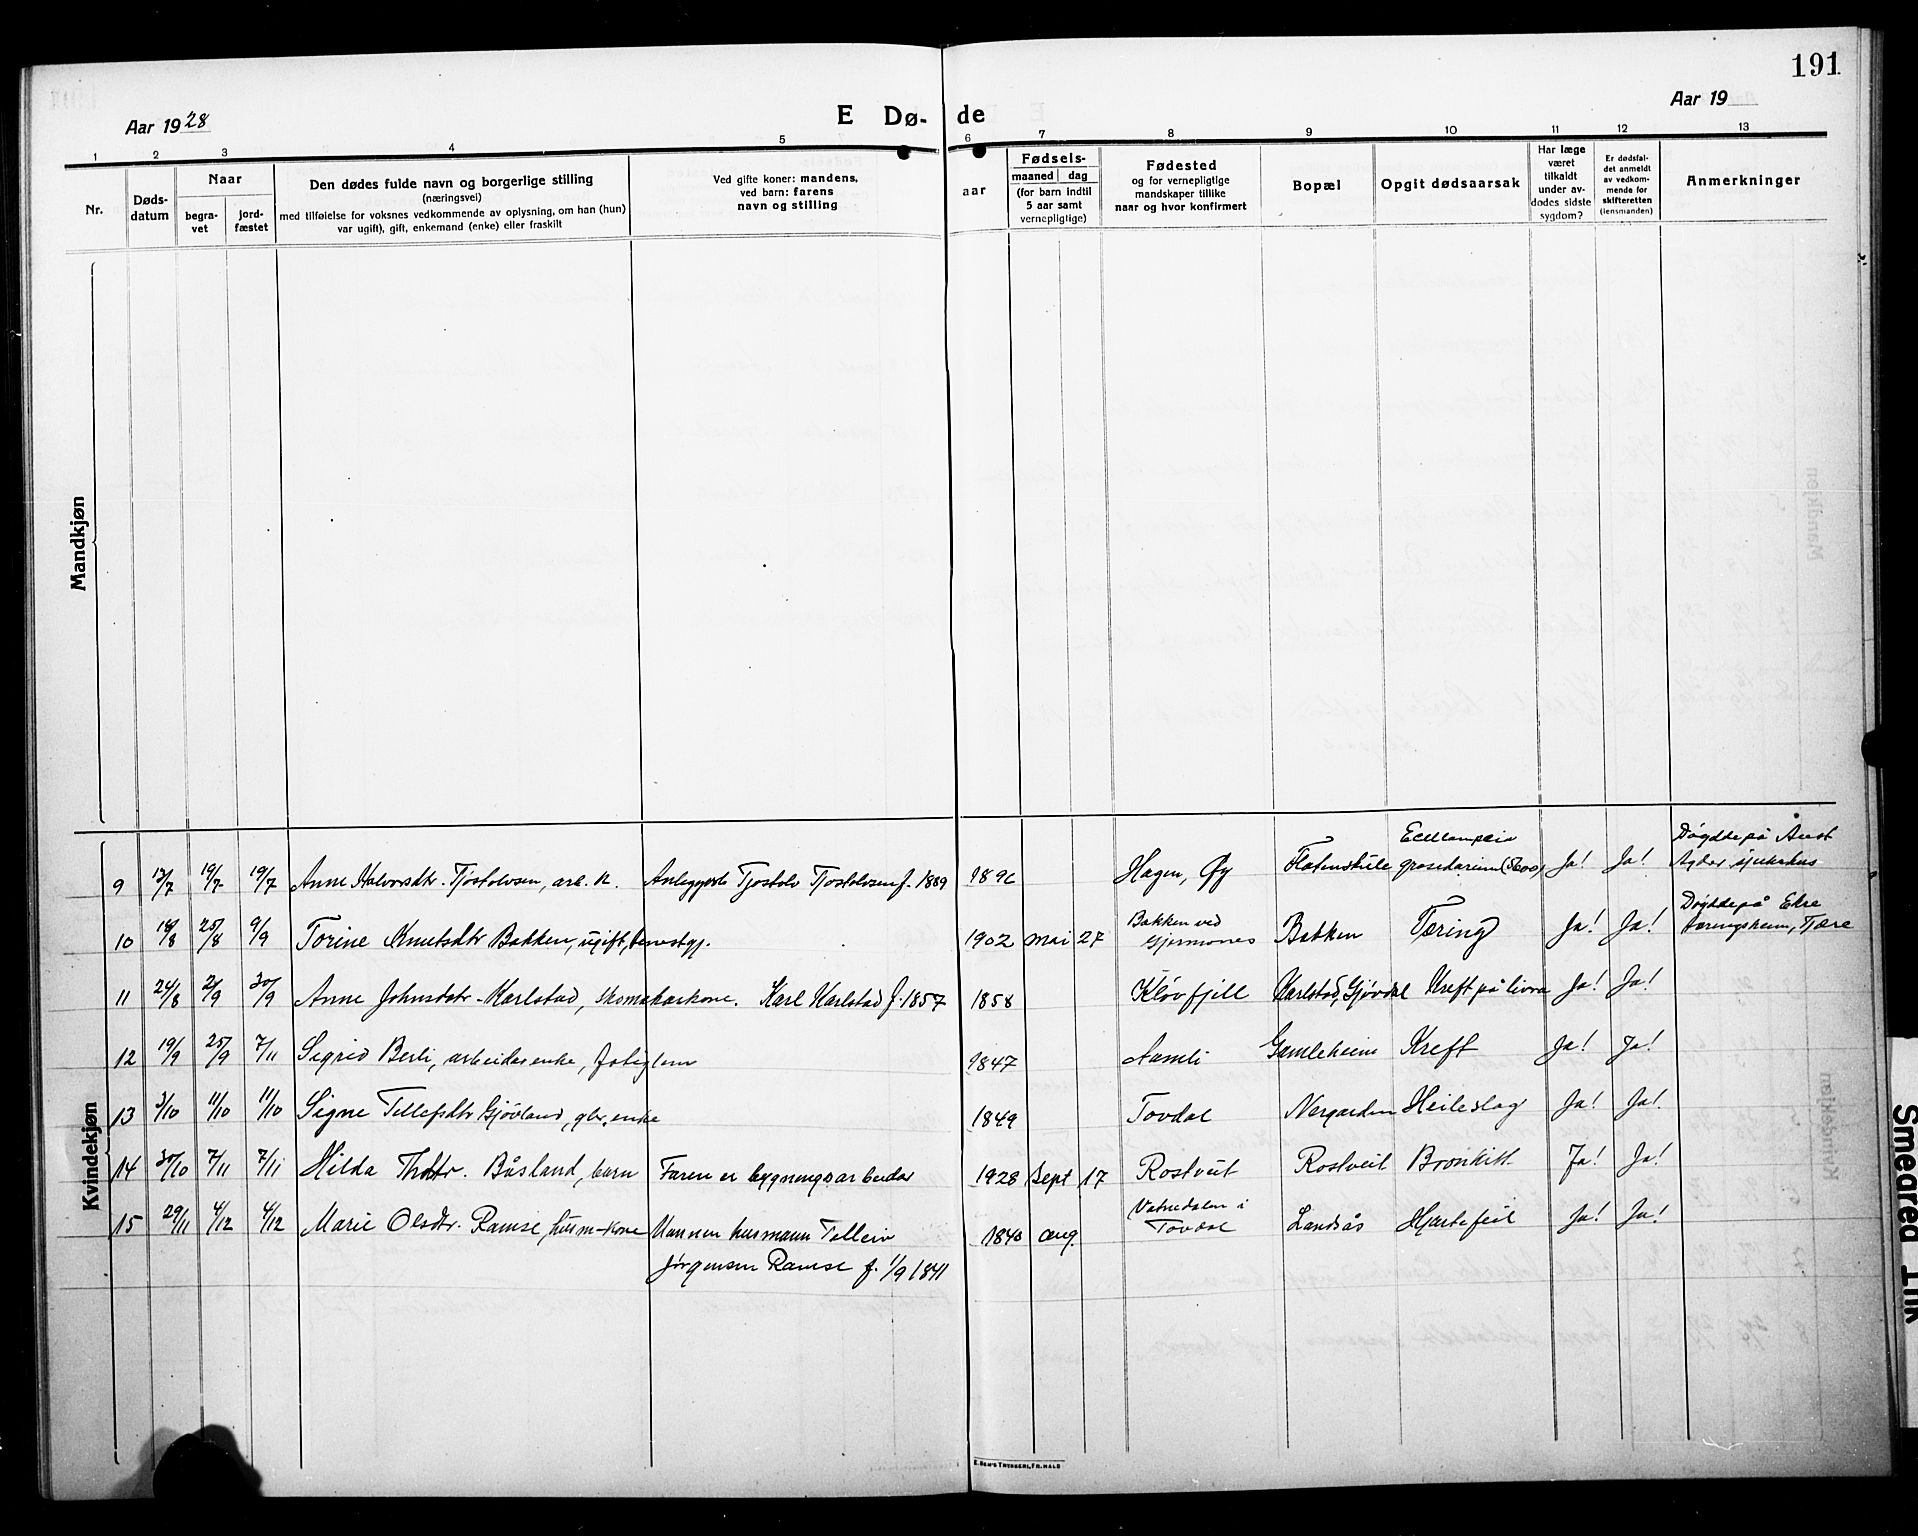 191
Aar 1928
E Dø-de
Aar 19
1 2 3 4 5 6 7 8 9 10 11 12 13
Nr.
Døds-
datum
Naar
begra-
vet
jord-
fæstet
Den dødes fulde navn og borgerlige stilling
(næringsvei)
med tilføielse for voksnes vedkommende av oplysning, om han (hun)
var ugift), gift, enkemand (enke) eller fraskilt
Ved gifte koner: mandens,
ved barn: farens
navn og stilling
aar
Fødsels-
maaned dag
(for barn indtil
5 aar samt
vernepligtige)
Fødested
og for vernepligtige
mandskaper tillike
naar og hvor konfirmert
Bopæl
Opgit dødsaarsak
Har læge
været
tilkaldt
under av-
dødes sidste
sygdom?
Er dødsfal-
det anmeldt
av vedkom-
mende for
skifteretten
(lensmanden)
Anmerkninger
Mandkjøn
Kvindekjøn
9 13/7 19/7 19/7 Anne Halvorsdtr. Tjostolvsen, arb. k. Tjostolv Tjostolvsen f. 1889 1896 Hagen, Øy Ja! Ja! Døydde på Aust
Agder sjukehus
10 18/8 25/8 9/9 Torine Knutsdtr Bakken, ugift, 1902 mai 27 Bakken ved
Bakken Tæring Ja! Ja! Døydde på Ekre
Tæringsheim,
11 24/8 2/9 30/9 Anne Johnsdtr. Karlstad, skomakarkone. Karl Karlstad f. 1857 1858 Kløvfjell Karlstad, Gjøvdal Kreft på livra Ja! Ja!
12 19/9 25/9 7/11 Sigrid Berli, arbeidarenke, 1847 Aamli Gamleheim Kreft Ja! Ja!
13 3/10 11/10 11/10 Signe Tellefsdtr Gjøvland, gbr. enke 1849 Tovdal Nergarden Heileslag Ja! Ja!
14 30/10 7/11 7/11 Hilda Båsland, barn Faren er bygningsarbeidar 1928 Sept 17 Rostveit Rostveit Bronkitt Ja! Ja!
15 29/11 4/12 4/12 Marie Olsdtr. Ramse, husm-kone Mannen husmann Tellein
Jørgensen Ramse f. 1/9 1841
1840 aug. Vatnedalen i
Tovdal
Landsås Hjartefeil Ja! Ja!
Smeared Ink